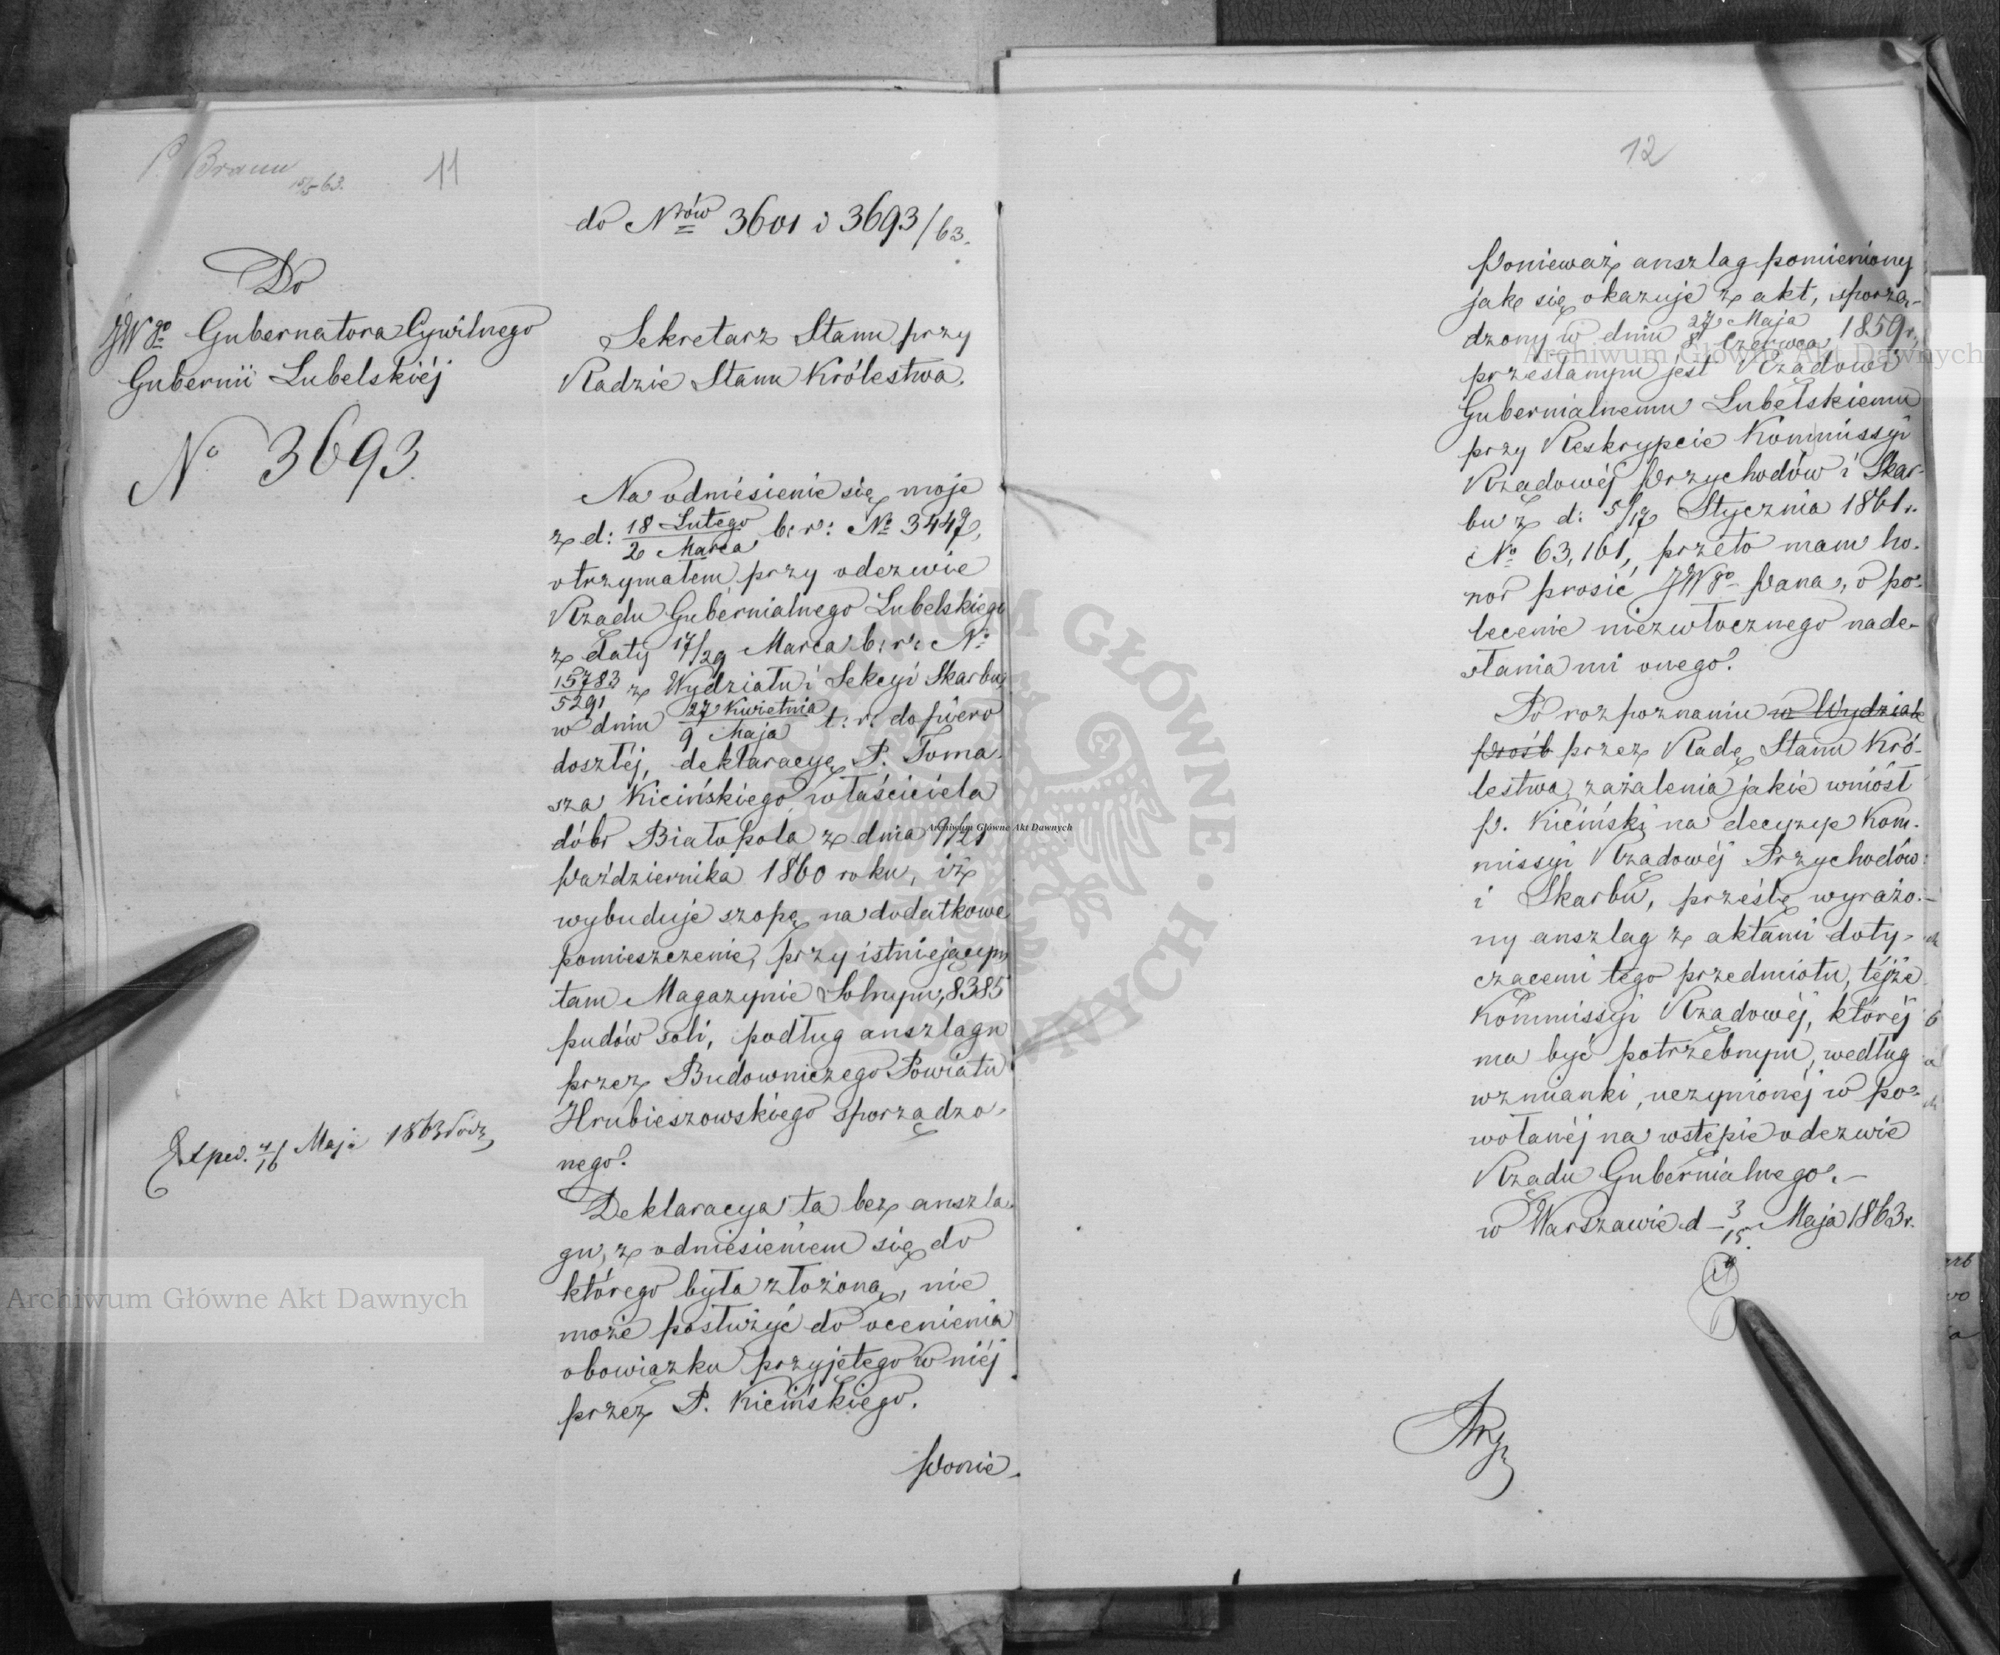 P. Braun
15/5 63.
11
do Nrów 3601 i 3693/63.
Do
JWgo Gubernatora Cywilnego
Gubernii Lubelskiéj
No 3693.
Exped. 4/16 Maja 1863
Sekretarz Stanu przy
Radzie Stanu Królestwa.
Na odniesienie się moje
z d: 18 Lutego / 2 Marca b: r: No 3447,
otrzymałem przy odezwie
Rządu Gubernialnego Lubelskiego
z daty 17/29 Marca b: r: No
15783/5291 z Wydziału i Sekcyi Skarbu,
w dniu 27 Kwietnia / 9 Maja t: r: dopiero
doszłéj, deklaracyę P. Toma-
sza Kicińskiego właściciela
dóbr Białopola z dnia 9/21
Października 1860 roku, iż
wybuduje szopę na dodatkowe
pomieszczenie, przy istniejącym
tam Magazynie Solnym, 8385
pudów soli, podług anszlagu
przez Budowniczego Powiatu
Hrubieszowskiego sporządzo-
nego.
Deklaracya ta bez anszla-
gu, z odniesieniem się do
którego była złożona, nie
może posłużyć do ocenienia
obowiązku przyjętego w niéj
przez P. Kicińskiego.
Ponie-
12
Ponieważ anszlag pomieniony
jak się okazuje z akt, sporzą-
dzony w dniu 27 Maja / 8 Czerwca 1859 r.,
przesłanym jest Rządowi
Gubernialnemu Lubelskiemu
przy Reskrypcie Kommissyi
Rządowéj Przychodów i Skar-
bu z d: 5/17 Stycznia 1861 r.
No 63,161, przeto mam ho-
nor prosić JWgo Pana, o po-
lecenie niezwłocznego nade-
słania mi onego.
Po rozpoznaniu w Wydziale
prośb przez Radę Stanu Kró-
lestwa, zażalenia jakie wniósł
P. Kiciński na decyzyę Kom-
missyi Rządowéj Przychodów
i Skarbu, prześlę wyrażo-
ny anszlag z aktami doty-
czącemi tego przedmiotu, téjże
Kommissyi Rządowéj, któréj
ma być potrzebnym, według
wzmianki, uczynionéj w po-
wołanéj na wstępie odezwie
Rządu Gubernialnego.—
w Warszawie d 3/15 Maja 1863 r.
Archiwum Główne Akt Dawnych
Archiwum Główne Akt Dawnych
Archiwum Główne Akt Dawnych